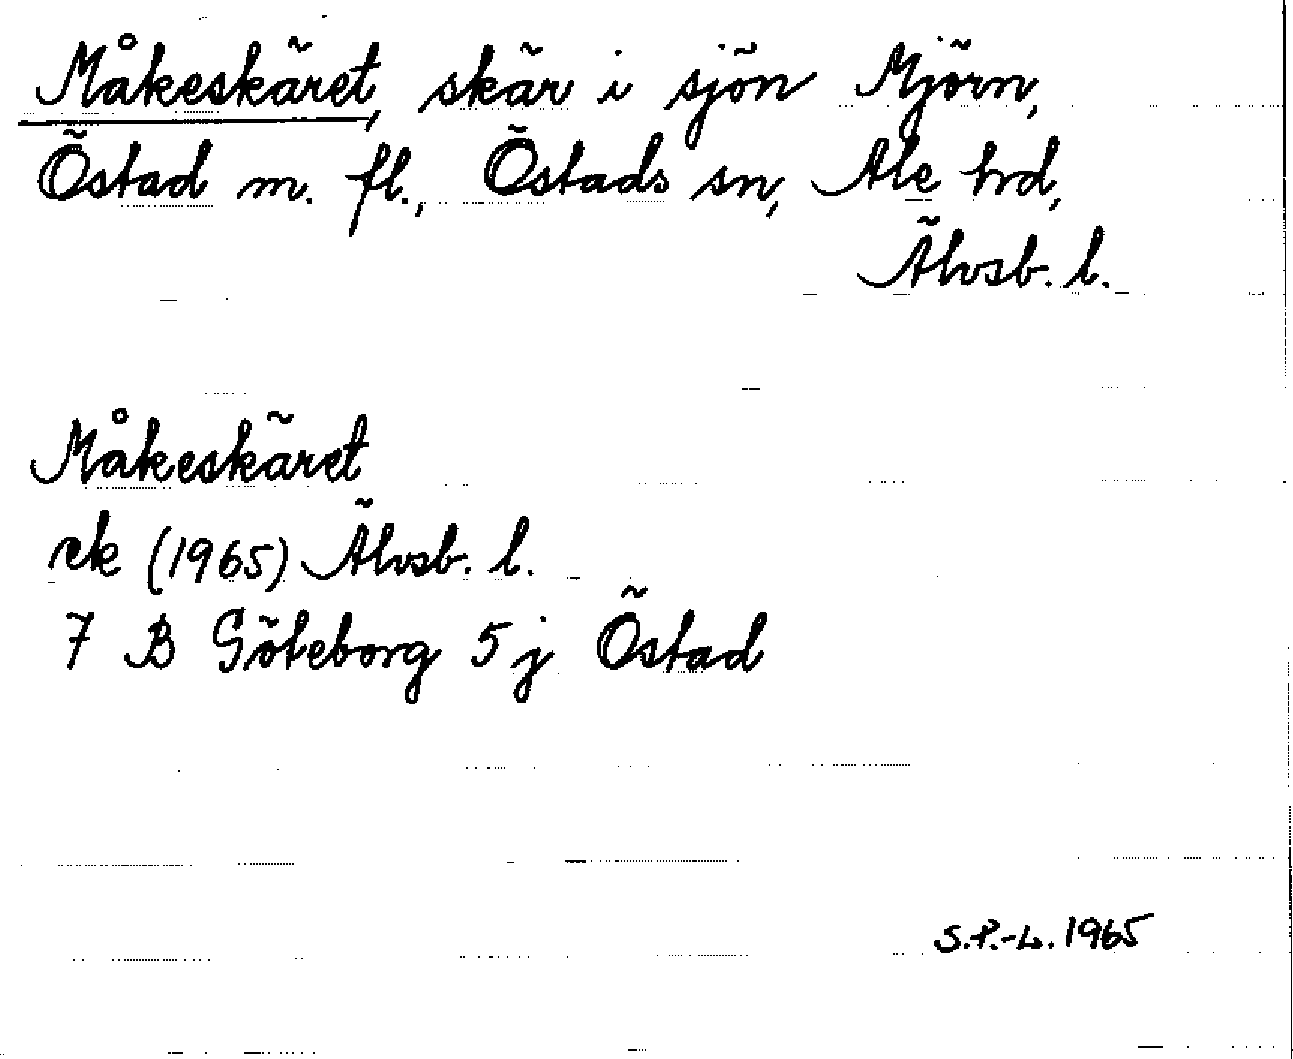 Måkeskäret, skär i sjön Mjörn,
Östad m. fl., Östads sn, Ale hrd,
Älvsb. l.
Måkeskäret
rk (1965) Älvsb. l.
7 B Göteborg 5 j Östad
S.P.-L. 1965